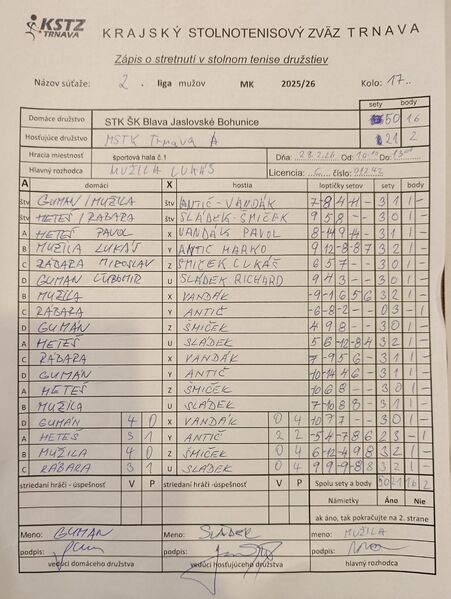 KSTZ
TRNAVA
KRAJSKÝ STOLNOTENISOVÝ ZVÄZ TRNAVA
Zápis o stretnutí v stolnom tenise družstiev
Názov súťaže: 2. liga mužov MK 2025/26 Kolo: 17..
sety body
Domáce družstvo STK ŠK Blava Jaslovské Bohunice 50 16
Hosťujúce družstvo MSTK Trnava A 21 2
Hracia miestnosť športová hala č.1 Dňa: 28.2.26 Od: Do:
Hlavný rozhodca MUŽILA LUKÁŠ Licencia: C číslo
A domáci X hostia loptičky setov sety body
štv GUMAN / MUŽILA štv ANTIČ - VANDÁK 7-8 4 11 - 3 1 1 -
štv HETEŠ / RÁBARA štv SLÁDEK - ŠMIČEK 9 5 8 - - 3 0 1 -
A HETEŠ PAVOL X VANDÁK PAVOL 8-14 9 4 - 3 1 1 -
B MUŽILA LUKÁŠ Y ANTIC MARKO 9 12-8-8 7 3 2 1 -
C RÁBARA MIROSLAV Z ŠMIČEK LUKÁŠ 6 5 7 - - 3 0 1 -
D GUMAN ĽUBOMÍR U SLÁDEK RICHARD 9 4 3 - - 3 0 1 -
B MUŽILA X VANDÁK -9-1 6 5 6 3 2 1 -
C RÁBARA Y ANTIČ -6-8-2 - - 0 3 - 1
D GUMÁN Z ŠMIČEK 4 9 8 - - 3 0 1 -
A HETEŠ U SLÁDEK 5 6-12-8 4 3 2 1 -
C RÁBARA X VANDÁK 7-9 5 6 - 3 1 1 -
D GUMAN Y ANTIČ 10-14 4 6 - 3 1 1 -
A HETEŠ Z ŠMIČEK 10 6 8 - - 3 0 1 -
B MUŽILA U SLÁDEK 7-10 8 8 - 3 1 1 -
D GUMÁN 4 0 X VANDÁK 0 4 10 7 7 - - 3 0 1 -
A HETEŠ 3 1 Y ANTIČ 2 2 -5 4-7 8 6 2 3 - 1
B MUŽILA 4 0 Z ŠMIČEK 0 4 6-12-4 9 8 3 2 1 -
C RÁBARA 3 1 U SLÁDEK 0 4 9 9-9 8 8 3 2 1 -
striedaní hráči - úspešnosť V P striedaní hráči - úspešnosť V P Spolu sety a body 50 21 16 2
Námietky Áno Nie
ak áno, tak pokračujte na 2. strane
Meno: GUMAN Meno: SLÁDEK meno: MUŽILA
podpis: podpis: podpis:
vedúci domáceho družstva vedúci hosťujúceho družstva hlavný rozhodca